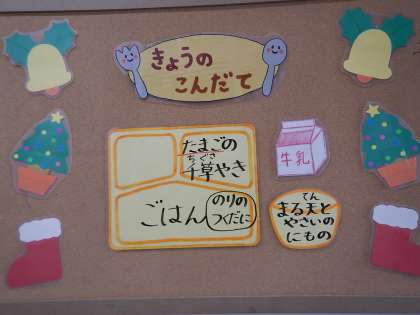 きょうの
こんだて
たまごの
ちぐさ
千草やき
ごはん
のりの
つくだに
牛乳
てん
まる天と
やさいの
にもの